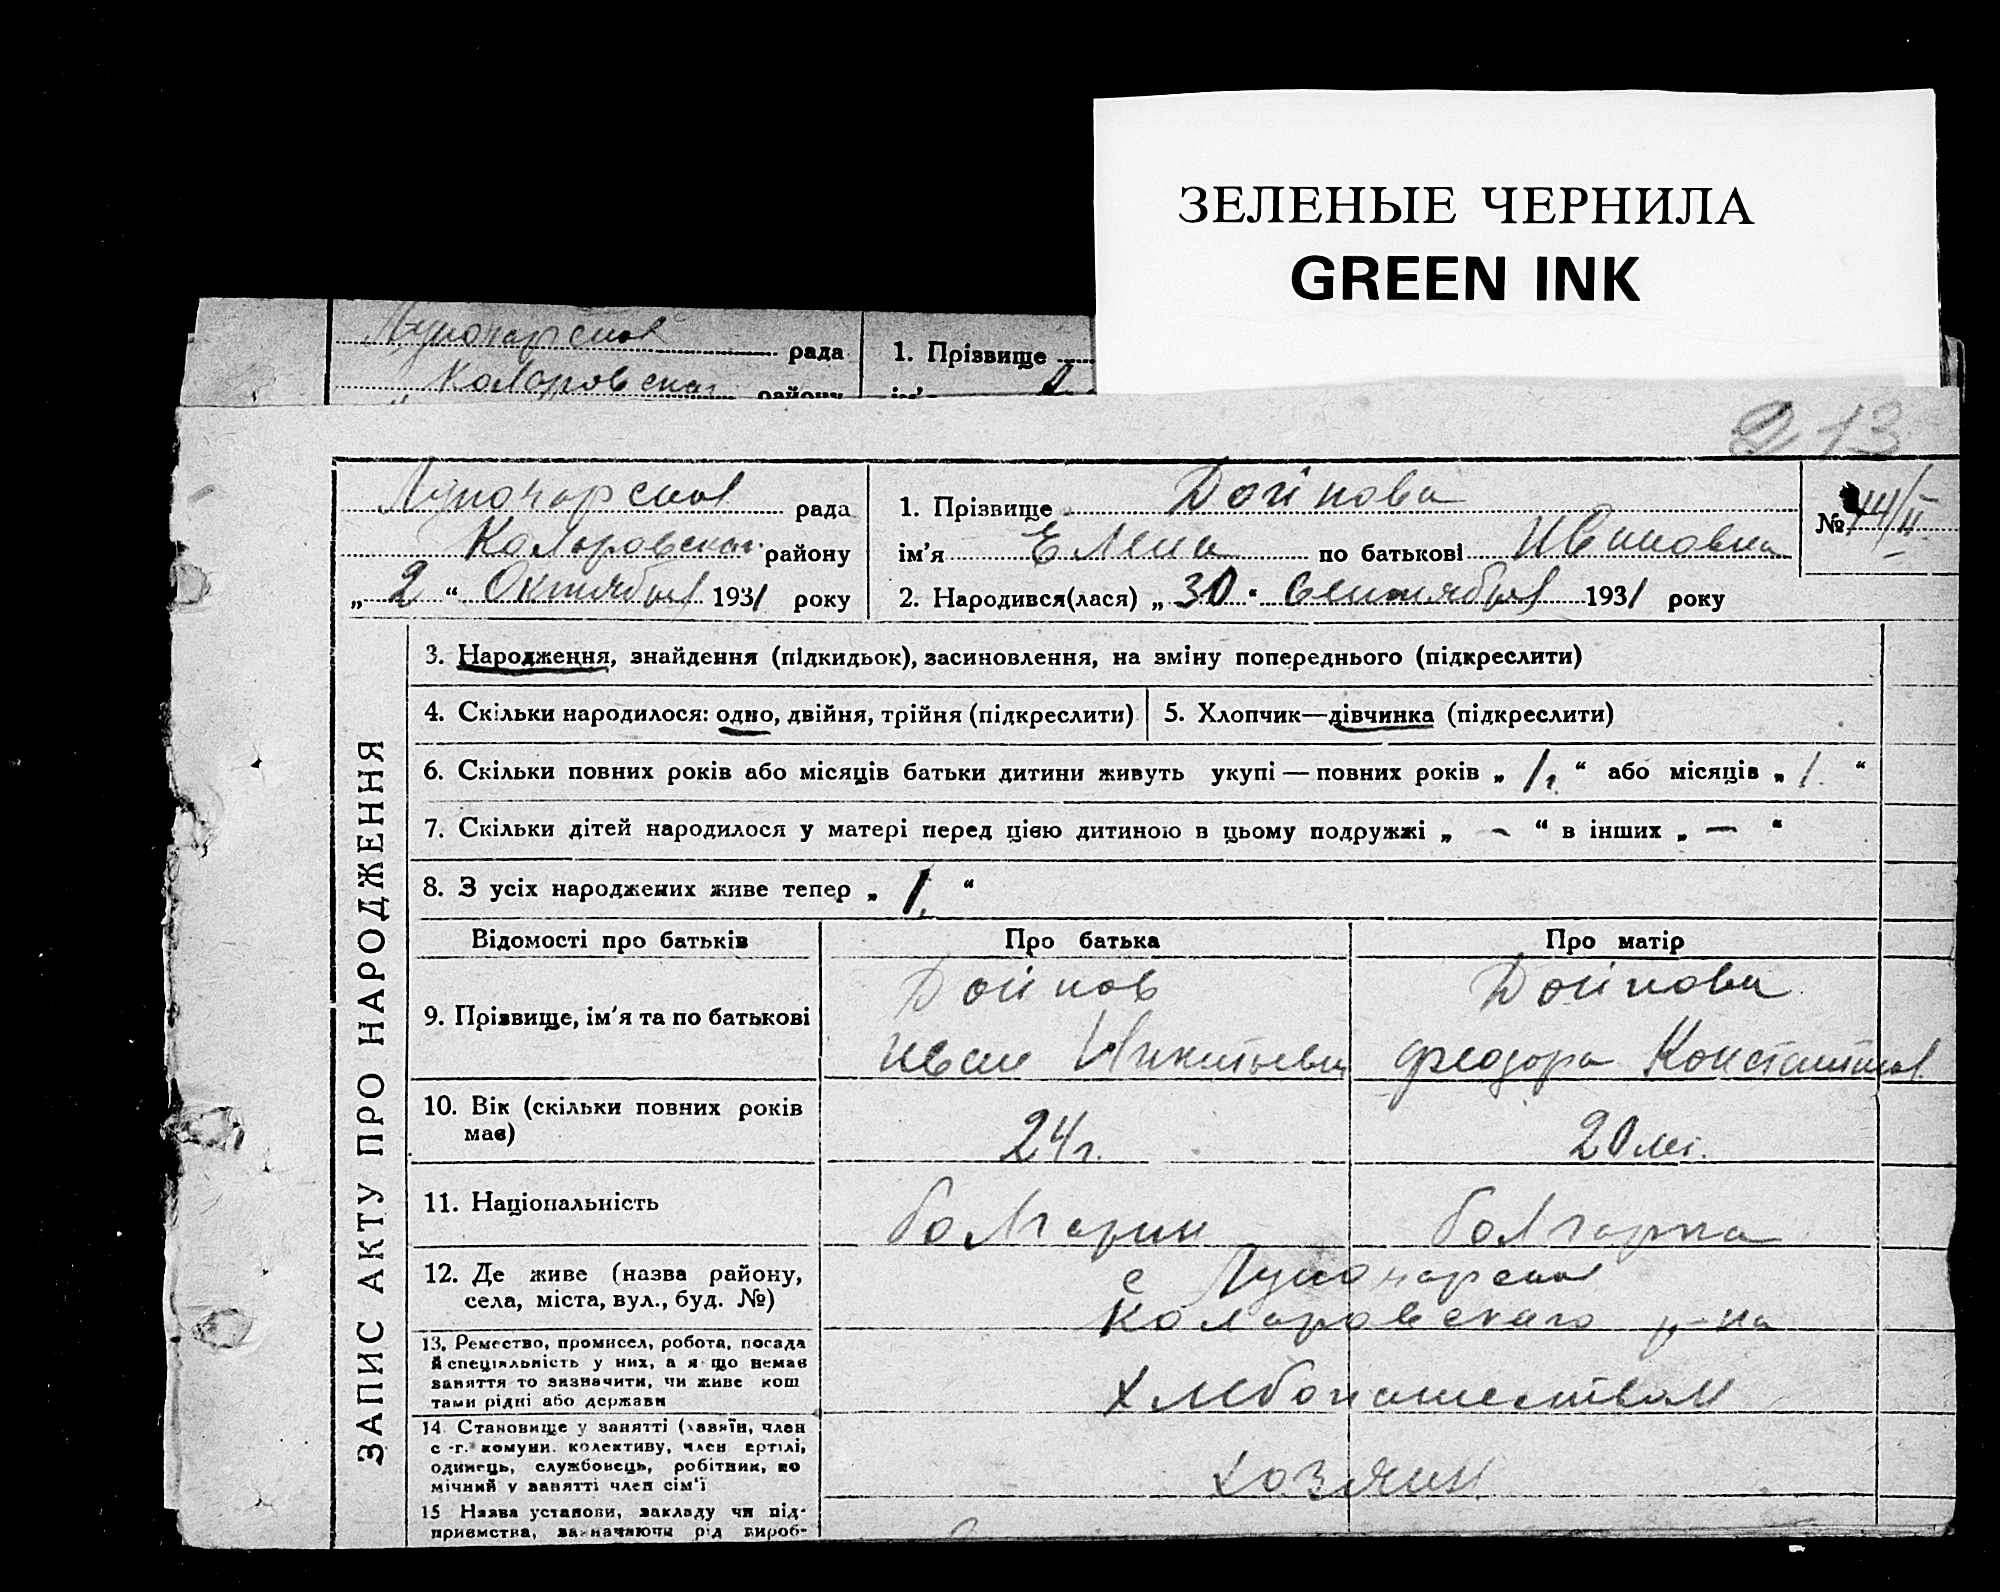 ЗЕЛЕНЫЕ ЧЕРНИЛА
GREEN INK
Луночарская рада
1. Прізвище
Коларовская району
213
Луночарская рада
1. Прізвище Дойнова
№ 44/II
Коларовская району
ім'я Елена по батькові Ивановна
„ 2 “ Октября 1931 року
2. Народився(лася) „ 30 “ Сентября 1931 року
ЗАПИС АКТУ ПРО НАРОДЖЕННЯ
3. Народження, знайдення (підкидьок), засиновлення, на зміну попереднього (підкреслити)
4. Скільки народилося: одно, двійня, трійня (підкреслити)
5. Хлопчик—дівчинка (підкреслити)
6. Скільки повних років або місяців батьки дитини живуть укупі — повних років „ 1 г. “ або місяців „ 1. “
7. Скільки дітей народилося у матері перед цією дитиною в цьому подружжі „ — “ в інших „ — “
8. З усіх народжених живе тепер „ 1. “
Відомості про батьків
Про батька
Про матір
9. Прізвище, ім'я та по батькові
Дойнов
Иван Никитьевич
Дойнова
Феодора Константинов.
10. Вік (скільки повних років
має)
24 г.
20 лет.
11. Національність
болгарин
болгарка
12. Де живе (назва району,
села, міста, вул., буд. №)
с Луночарская
Коларовскаго р-на
13. Ремество, промисел, робота, посада
й спеціяльність у них, а якщо немає
заняття то зазначити, чи живе кош
тами рідні або держави
Хлебопашеством
14 Становище у занятті (хазяїн, член
с -г. комуни. колективу, член артілі,
одинець, службовець, робітник, по
мічний у занятті член сім'ї
хозяин.
15 Назва установи, закладу чи під-
приємства, зазначаючи рід вироб-